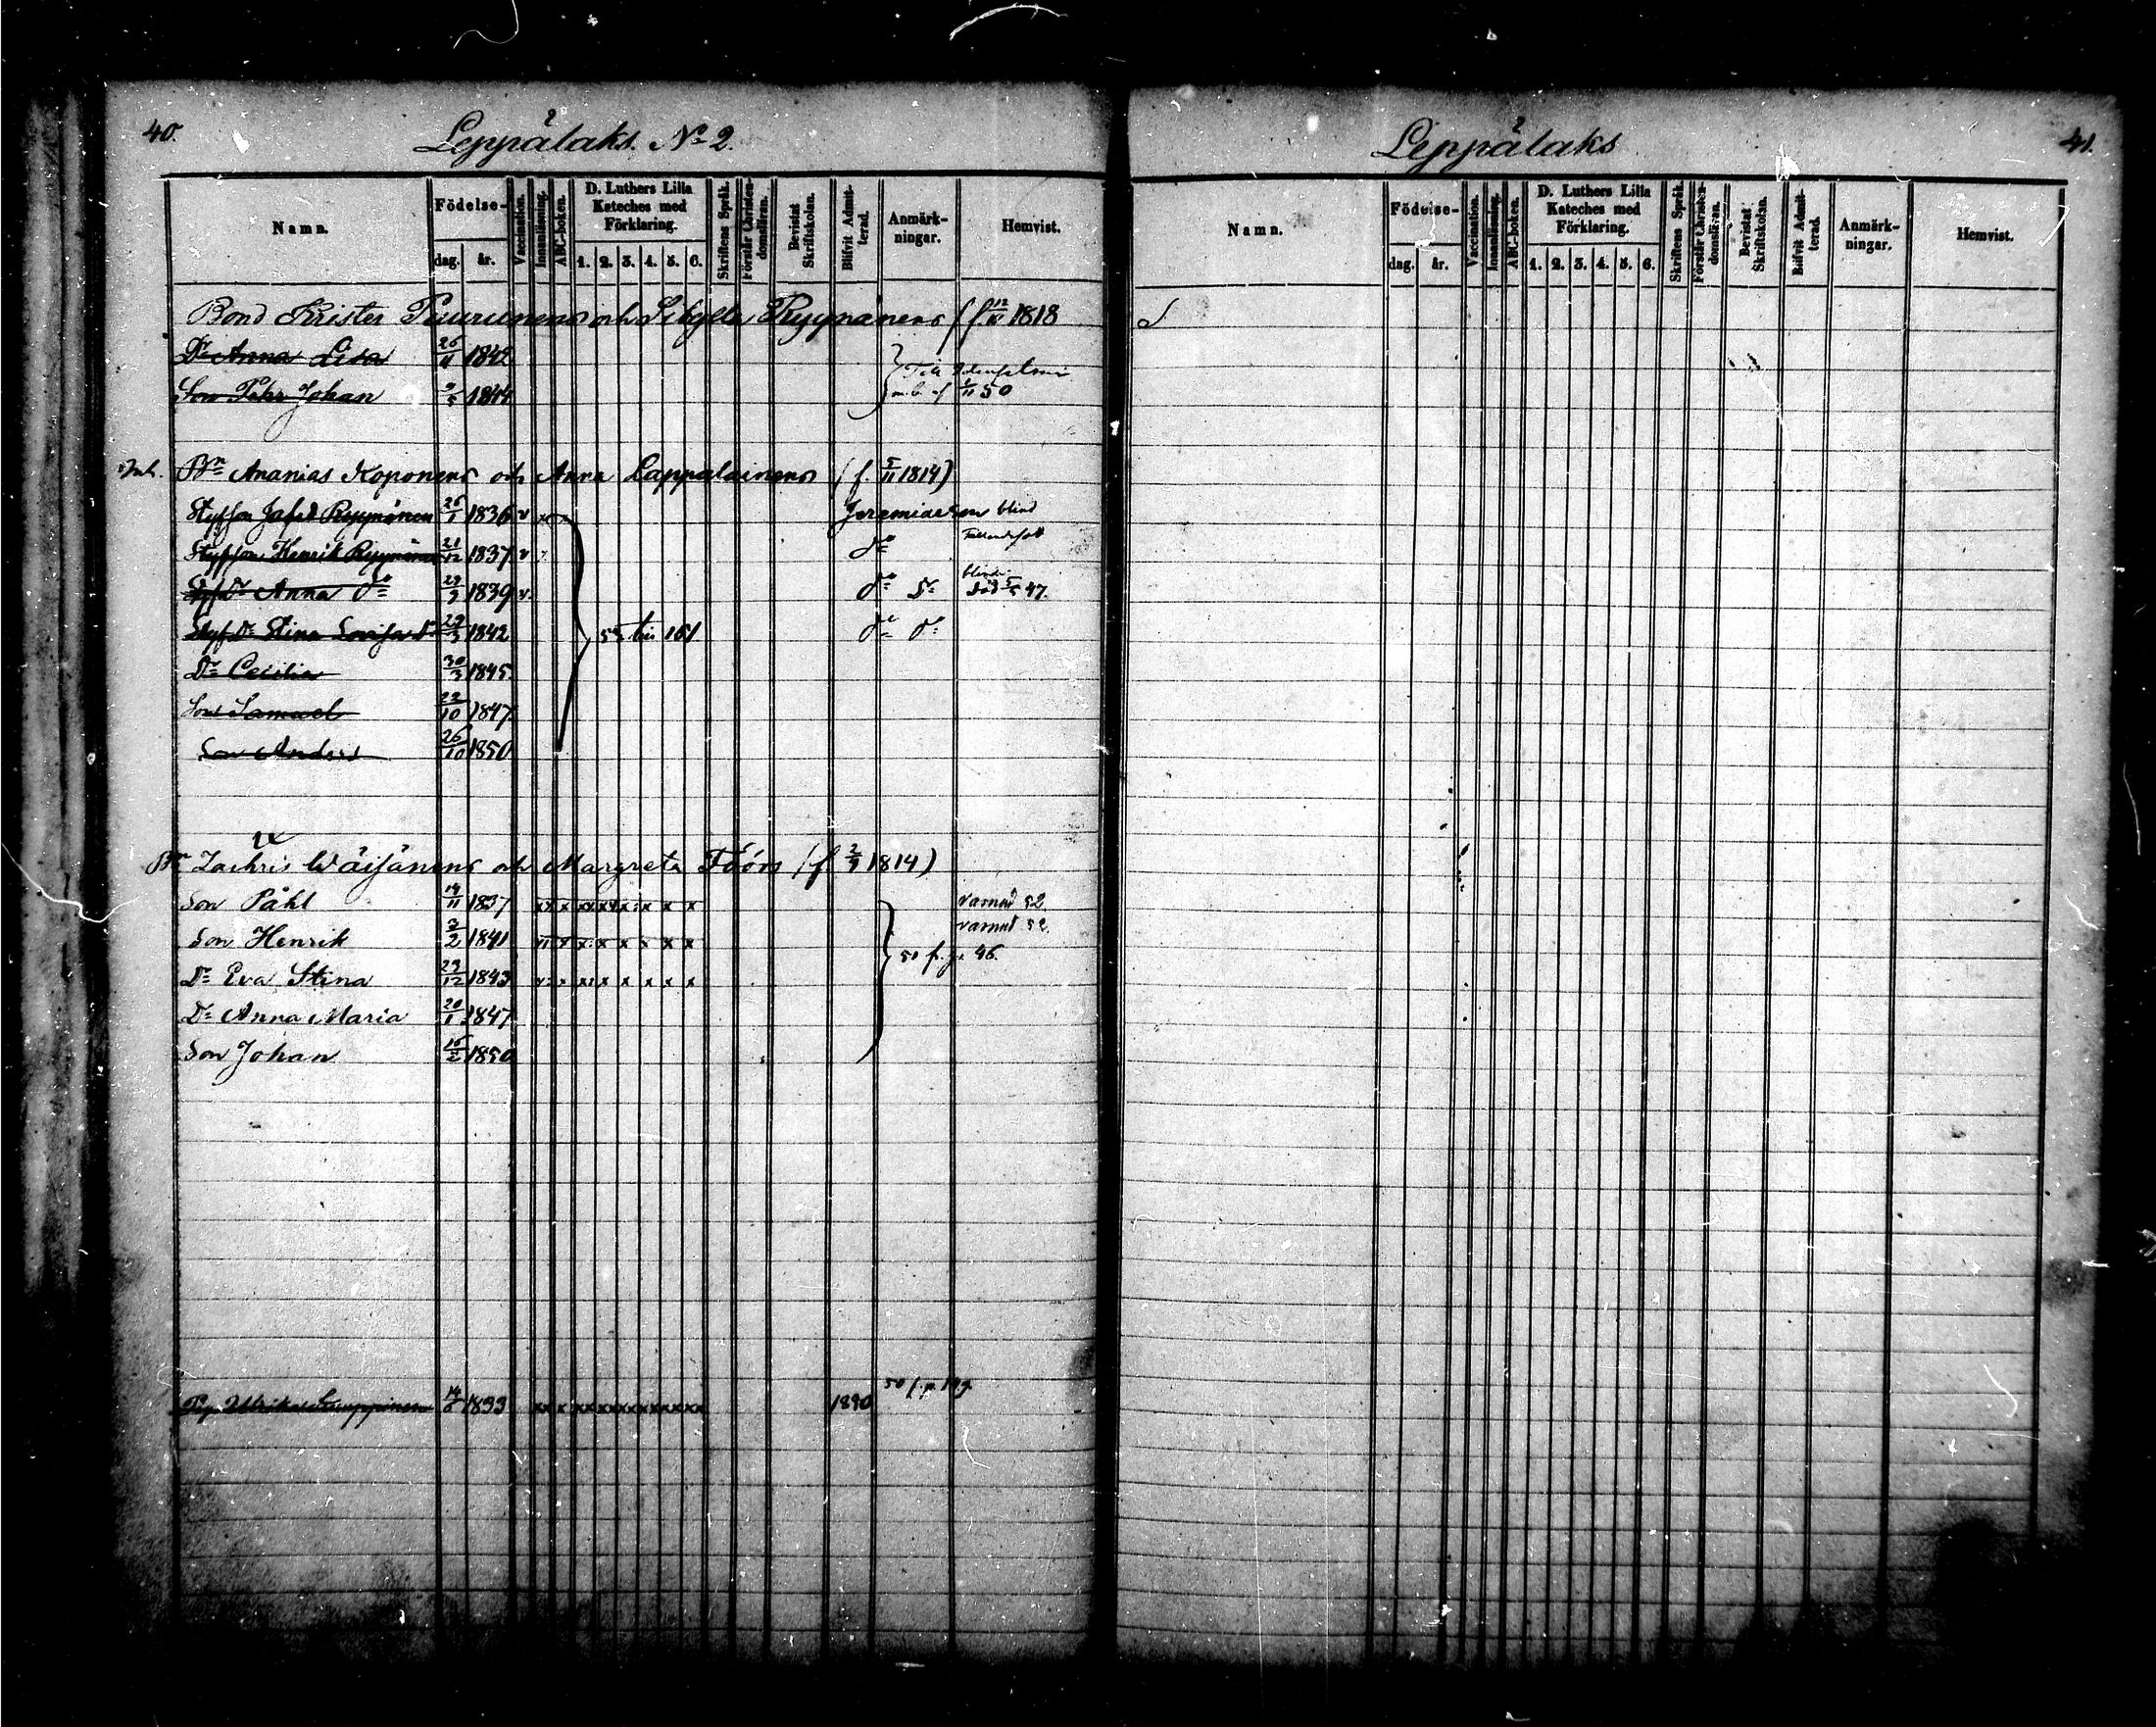 40.
Leppälaks. No 2.
Namn.
Födelse-
dag. år.
Vaccination.
Innanläsning.
ABC-boken.
D. Luthers Lilla Kateches med Förklaring.
1. 2. 3. 4. 5. 6.
Skriftens Språk.
Förstår Christendomsläran.
Bevistat Skriftskolan.
Blifvit Admitterad.
Anmärkningar.
Hemvist.
Bond Krister Puurunens och Sibylla Ryynänens (f. 12/10 1818
Dr Anna Lisa 26/11 1842
Son Pehr Johan 5 1844 Till
50
Inh. Bn Ananias Koponens och Anna Lappalainens (f. 5/11 1814)
Styfson Jafed Ryynänen 26/1 1836 v x Jeremiæ son blind
Styfson Henrik Ryynänen 21/12 1837 v do
Styf Dr Anna do 29/3 1839 v. do Dr blind död 47.
Styf Dr Stina Lovisa 29/3 1842 55 bis 161 do do
Dr Cecilia 30/3 1845
Son Samuel 22/10 1847
Son Anders 26/10 1850
Bn Zachris Wäisänens och Margreta Föórs (f. 2/9 1814)
Son Påhl 14/11 1837 xx x xx xx x x x x varnad 52
Son Henrik 3/2 1841 x x x x x x x varnad 52.
Dr Eva Stina 29/12 1843 x x x x x x x 50 f. p. 46.
Dr Anna Maria 20/1 1847
Son Johan 16/2 1850
50 f. p. 149.
Pig. Ulrika 14/6 1833 xx x xx xx xx xx xx xx 1850
Leppälaks
41.
Namn.
Födelse-
dag. år.
Vaccination.
Innanläsning.
ABC-boken.
D. Luthers Lilla Kateches med Förklaring.
1. 2. 3. 4. 5. 6.
Skriftens Språk.
Förstår Christendomsläran.
Bevistat Skriftskolan.
Blifvit Admitterad.
Anmärkningar.
Hemvist.